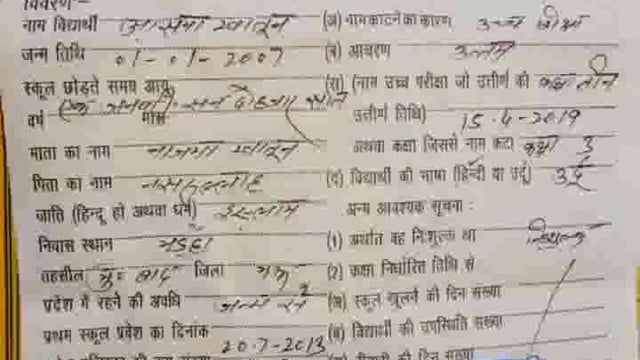 विवरण:-
नाम विद्यार्थी आसमा खातून (अ) नाम काटने का कारण उच्च शिक्षा
जन्म तिथि 01-01-2007 (ब) आचरण उत्तम
स्कूल छोड़ते समय आयु (स) (नाम उच्च परीक्षा जो उत्तीर्ण की कक्षा तीन
वर्ष एक जनवरी सन दो हजार सात मास उत्तीर्ण तिथि) 15-4-2019
माता का नाम नाजमा खातून अथवा कक्षा जिससे नाम कटा कक्षा 3
पिता का नाम (द) विद्यार्थी की भाषा (हिन्दी या उर्दू) उर्दू
जाति (हिन्दू हो अथवा धर्म) इस्लाम अन्य आवश्यक सूचना :
निवास स्थान (1) अर्थात वह निःशुल्क था निःशुल्क
तहसील जिला मऊ (2) कक्षा निर्धारित तिथि से
प्रदेश में रहने की अवधि जन्म से (अ) स्कूल खुलने की दिन संख्या
प्रथम स्कूल प्रवेश का दिनांक 20-7-2013 (ब) विद्यार्थी की उपस्थिति संख्या
की दिन संख्या